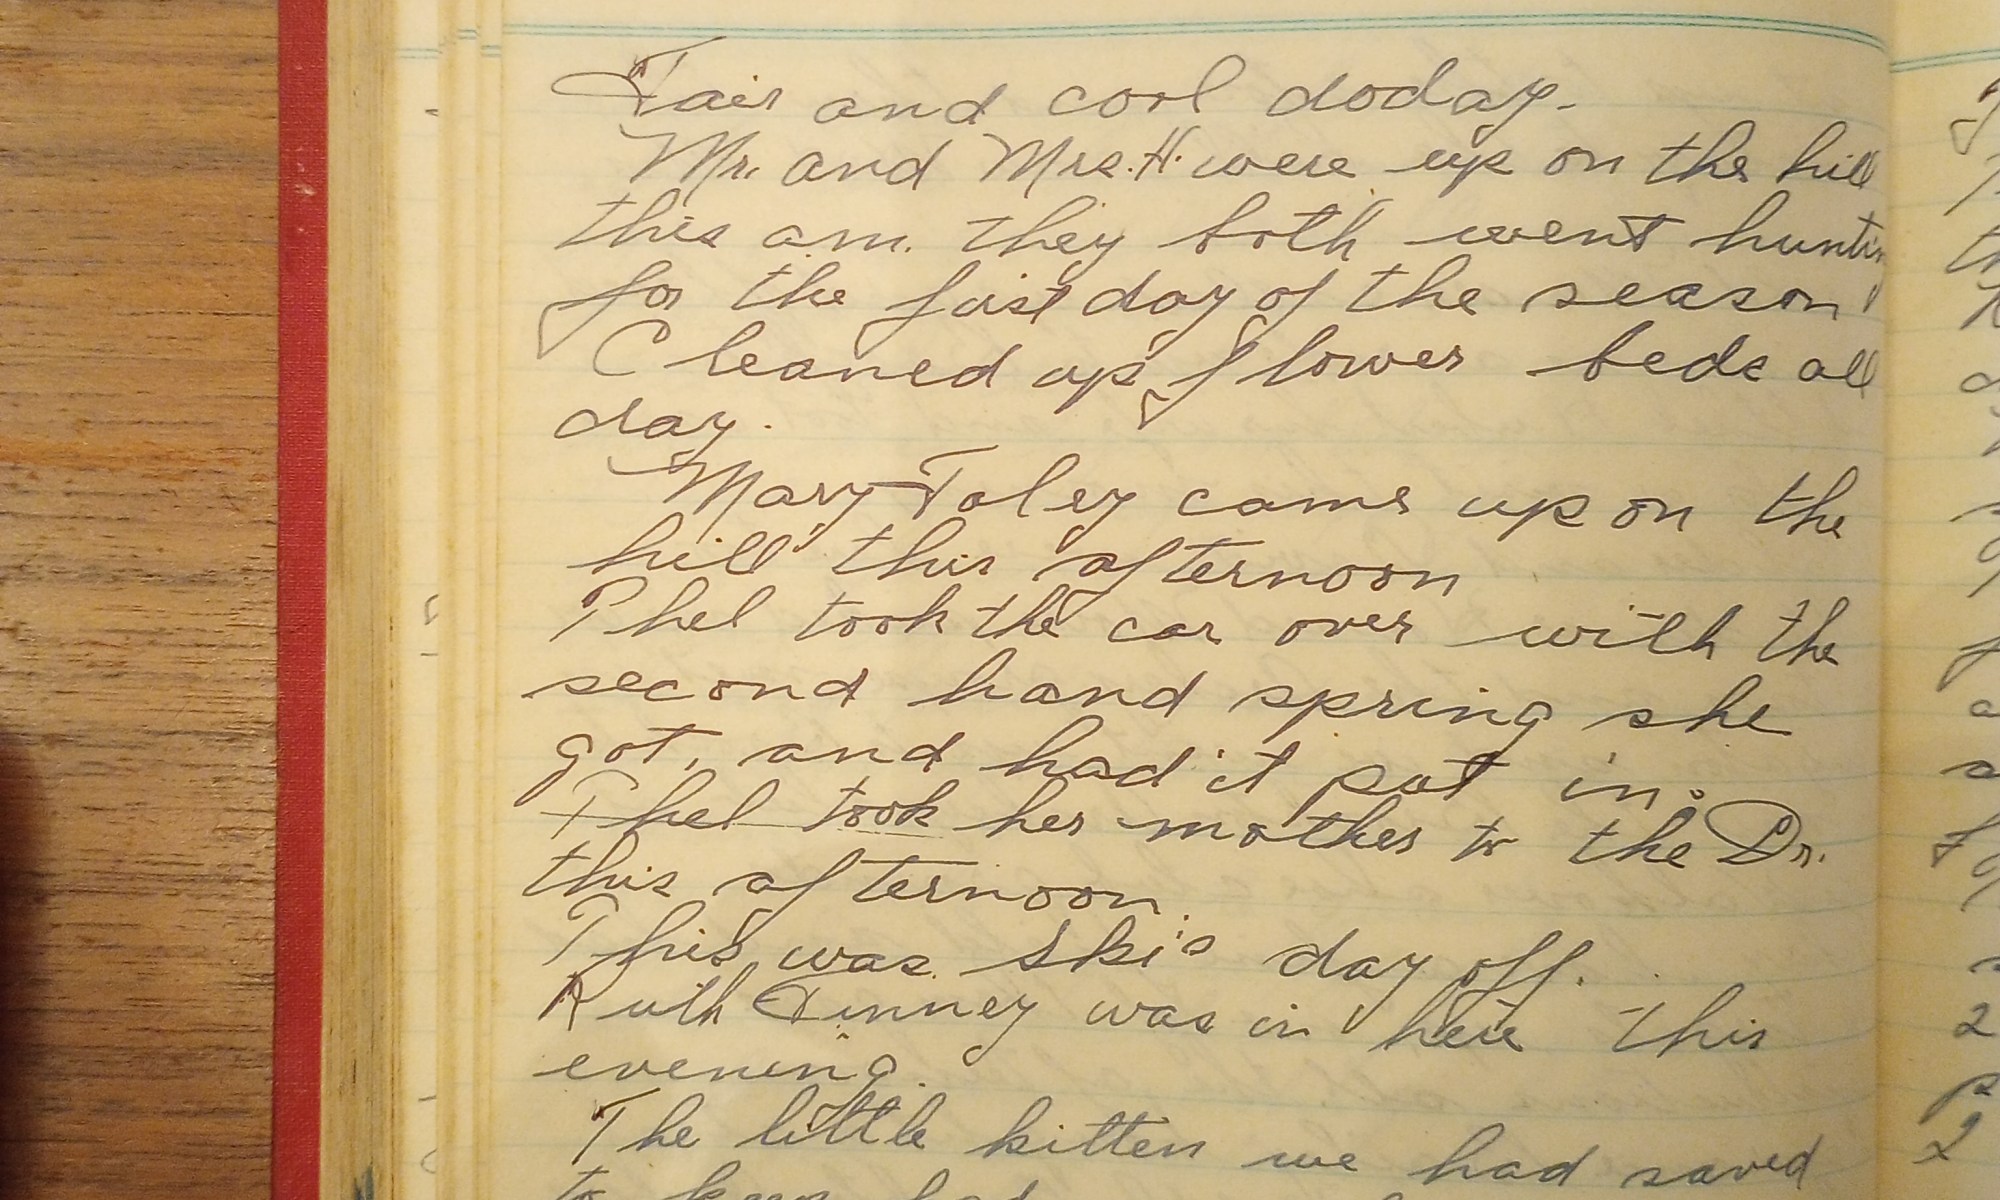 Fair and cool doday.
Mr. and Mrs. H. were up on the hill
this a.m. they both went hunting
for the first day of the season
Cleaned up flower beds all
day.
Mary Foley came up on the
hill this afternoon
Thel took the car over with the
second hand spring she
got, and had it put in.
Thel took her mother to the Dr.
this afternoon.
This was Ski's day off.
Ruth was in here this
evening.
The little kitten we had saved
to keep had